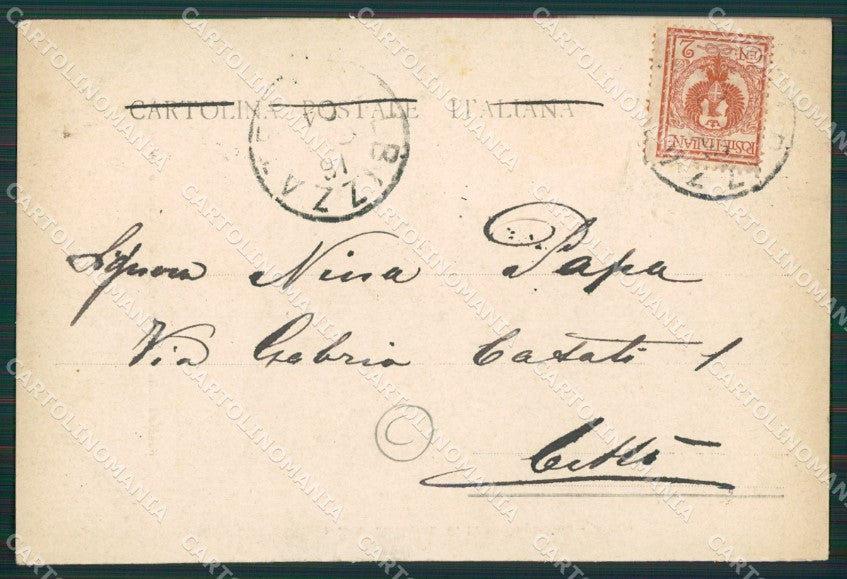 CARTOLINA POSTALE ITALIANA
CEN. 2
POSTE ITALIANE
Signora Nina Papa
Via Gabrio Casati 1
Città
C
CARTOLINOMANIA